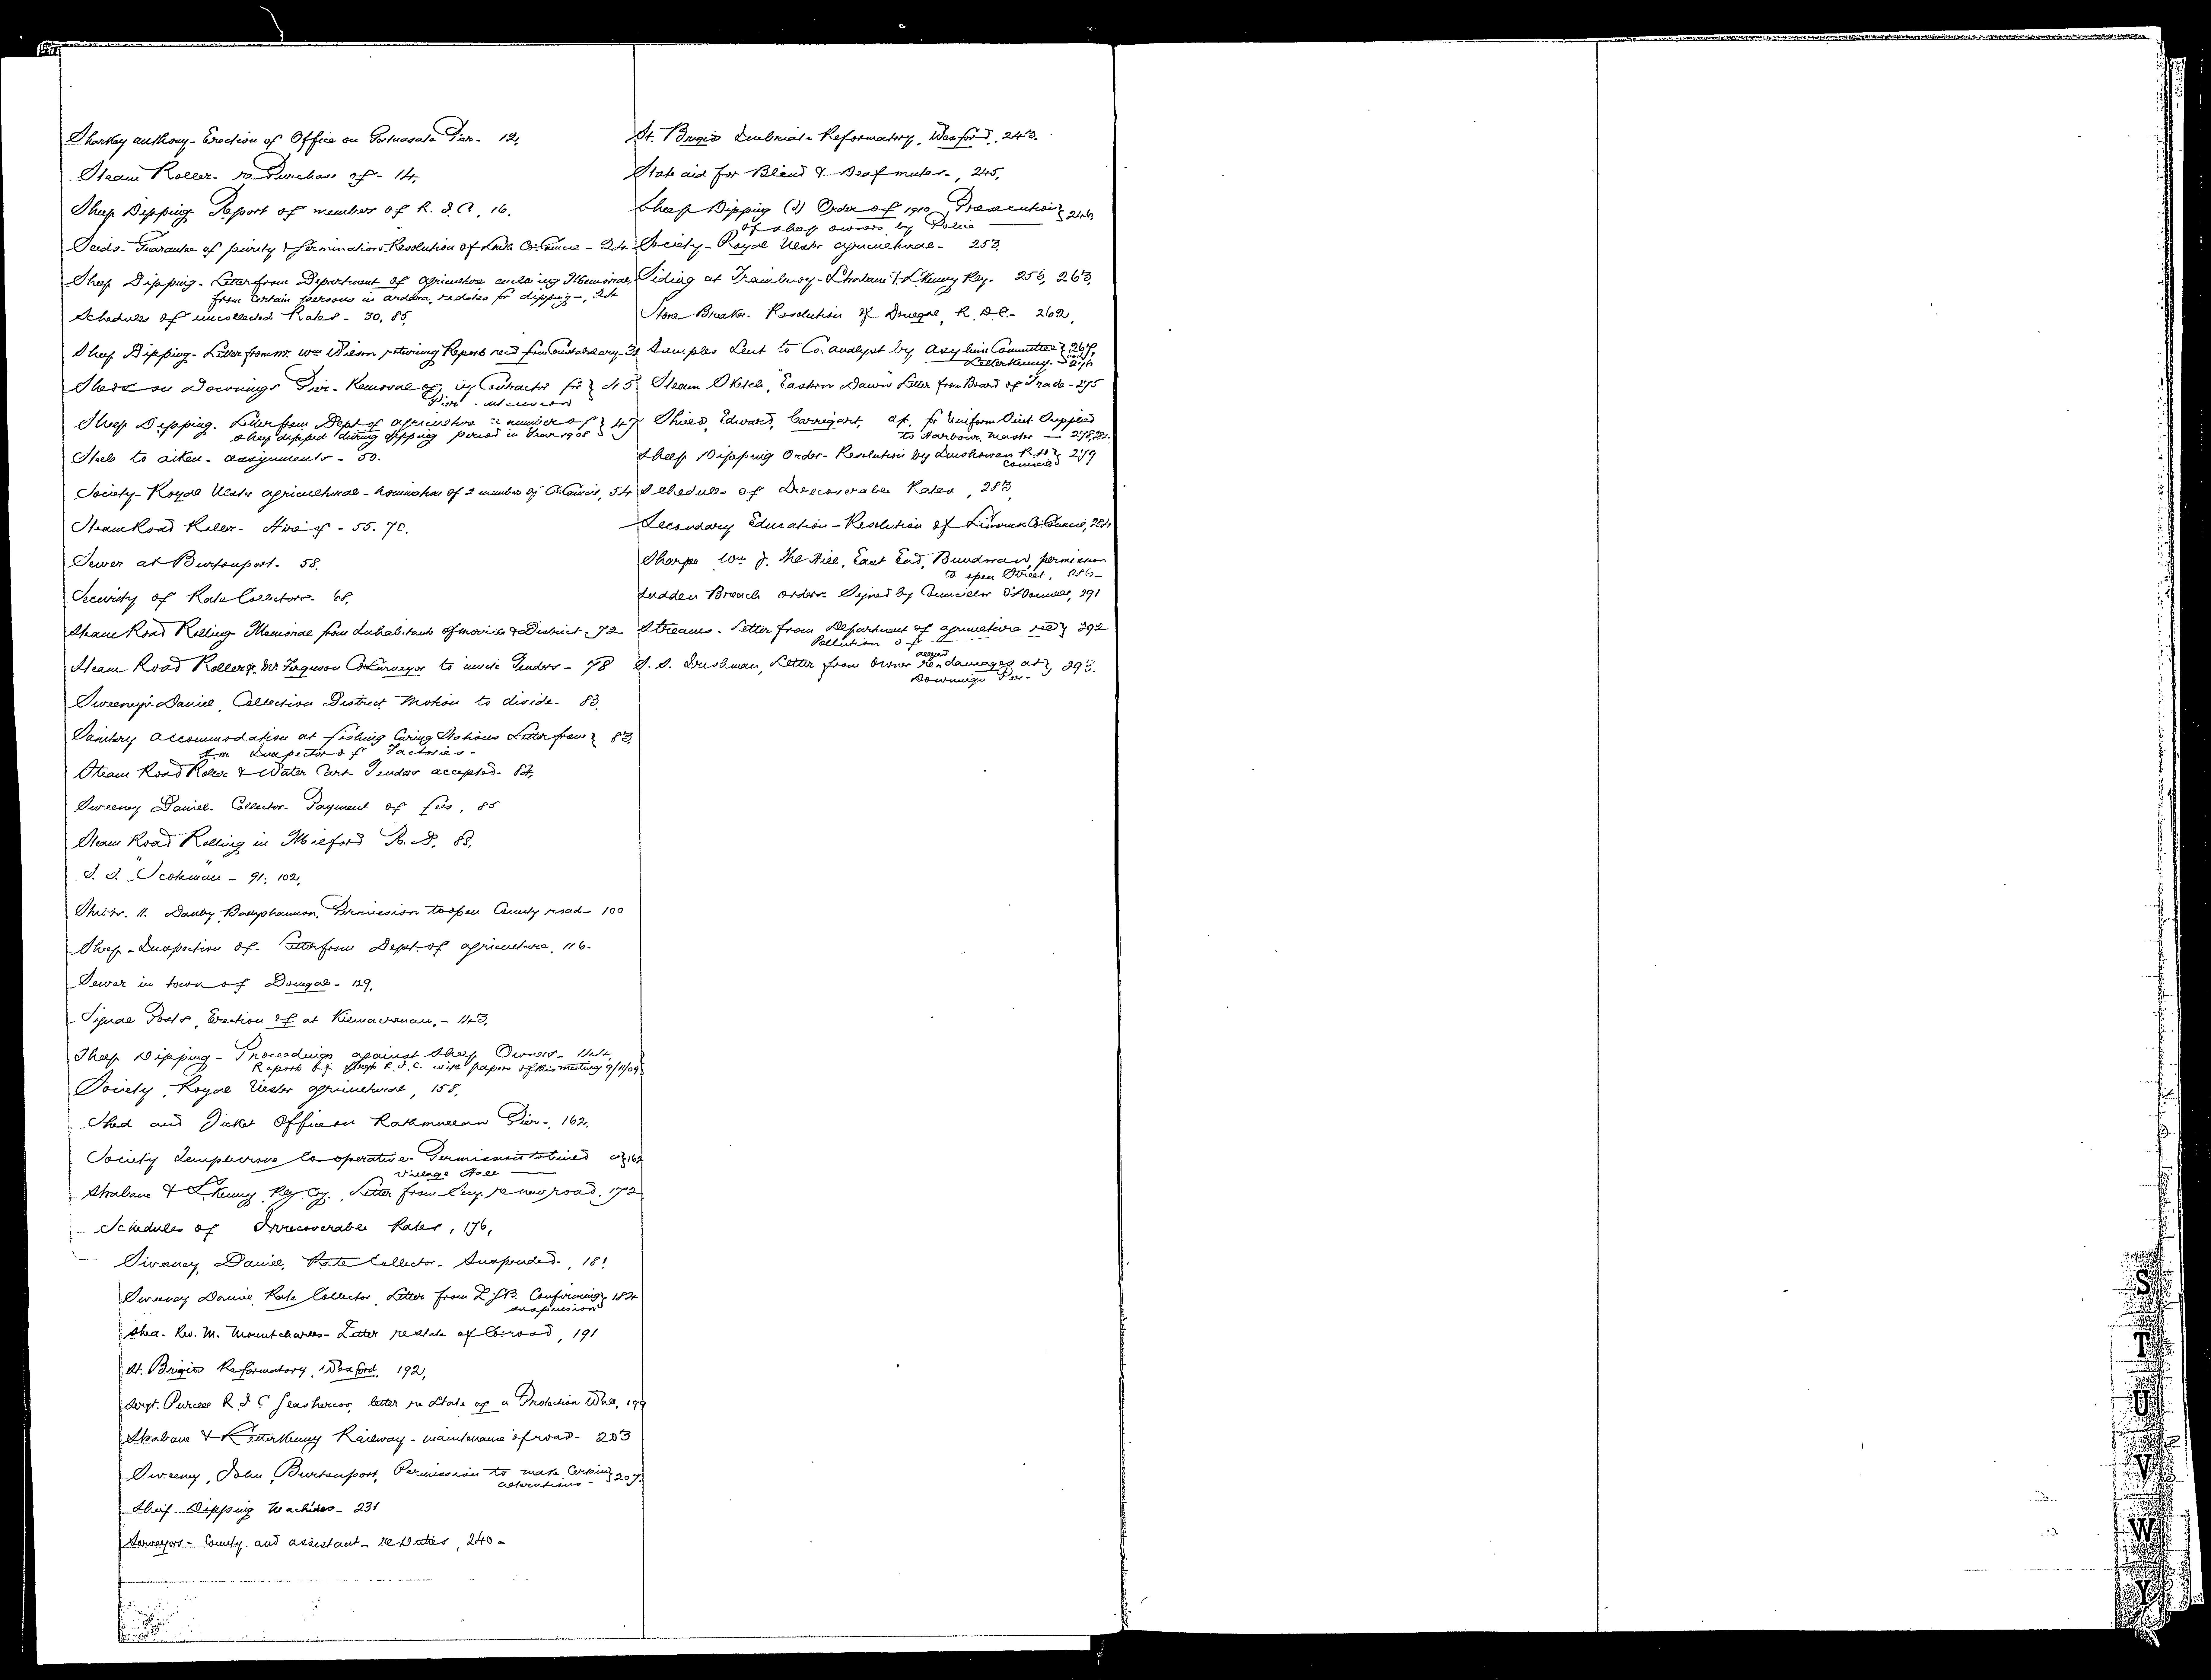 Sharkey Anthony - Erection of Office on Portnasala Pier - 12,
Steam Roller - re Purchase of - 14,
Sheep Dipping - Report of members of R. I. C. 16.
Seeds - Guarantee of purity & Germination - Resolution of Louth Co. Council - 24
Sheep Dipping - Letter from Department of Agriculture enclosing Memorial
from certain persons in Ardara, re dates for dipping -, 24
Schedules of uncollected Rates - 30, 85,
Sheep Dipping - Letter from Mr. Wm Wilson returning Reports recd from Constabulary - 31
Sheds on Downings Pier - Removal of, by Contractor for } 45
Pier extension
Sheep Dipping. Letter from Dept of Agriculture re number of } 47
sheep dipped during dipping period in Year 1908
Steele to Aiken - assignments - 50.
Society - Royal Ulster Agricultural - nomination of 2 members of Co. Council, 54
Steam Road Roller - Hire of - 55. 70.
Sewer at Burtonport - 58.
Security of Rate Collectors - 68,
Steam Road Rolling - Memorial from Inhabitants of Moville & District - 72
Steam Road Roller &c. Mr Ferguson Co Surveyor to invite Tenders - 78
Sweeney's Daniel, Collection District Motion to divide - 83,
Sanitary accommodation at fishing Curing Stations Letter from } 83
H.M. Inspector of Factories -
Steam Road Roller & Water Cart - Tenders accepted - 84,
Sweeney Daniel - Collector - Payment of fees, 85
Steam Road Rolling in Milford R. D. 88,
S. S. "Scotsman" - 91, 102,
H. Danby, Ballyshannon, Permission to open County road - 100
Sheep - Inspection of - Letter from Dept. of Agriculture, 116 -
Sewer in town of Donegal - 129,
Signal Posts, Erection of at Kilmacrenan, - 143,
Sheep Dipping - Proceedings against Sheep Owners - 144,
Reports of Sergts R. I. C. with papers of this meeting 9/11/09
Society, Royal Ulster Agricultural, 158,
Shed and Ticket Office on Rathmullan Pier -, 162,
Society Templecrone Co-operative - Permission to build a } 162
Village Hall
Strabane & L'Kenny Rly. Coy. Letter from Secy. re new road, 172
Schedules of Irrecoverable Rates, 176,
Sweeney, Daniel, Rate Collector - Suspended -, 181
Sweeney Daniel Rate Collector, Letter from L.G.B. Confirming } 184
suspension
Shea - Rev. M. Mountcharles - Letter re state of Co. road, 191
St. Brigids Reformatory, Wexford, 192,
Sergt. Purcell R. I. C. Glashercoo, letter re State of a Protection Wall, 199
Strabane & Letterkenny Railway - maintenance of road - 203
Sweeney, John, Burtonport, Permission to make Certain } 207
alterations -
Sheep Dipping Machines - 231
Surveyors - County and assistant - re Duties, 240 -
St. Brigids Inebriate Reformatory, Wexford, 243.
State aid for Blind & Deaf mutes -, 245,
Sheep Dipping (I) Order of 1910, Prosecution } 246
of sheep owners by Police
Society - Royal Ulster Agricultural - 253
Siding at Trambuoy - Strabane & L'Kenny Rly. 256, 263,
Stone Breaker - Resolution of Donegal, R. D. C. - 262,
Samples sent to Co. Analyst by Asylum Committee } 267,
Letterkenny - 274
Steam Sketch, "Eastern Dawn" Letter from Board of Trade - 275
Shield, Edward, Carrigart, a/c. for Uniform Suit Supplied
to Harbour Master — 278,
Sheep Dipping Order - Resolution by Inishowen R. D. } 279
Council
Schedules of Irrecoverable Rates, 283,
Secondary Education - Resolution of Limerick Co. Council, 284
Sharpe Wm J. The Hill, East End, Bundoran, permission
to open Street, 286 -
Sudden Breach orders - Signed by Councillor O'Donnell, 291
Streams - Letter from Department of Agriculture re } 292
Pollution of
S. S. Irishman, Letter from Owner re alleged damages at } 293.
Downings Pier -
S
T
U
V
W
Y